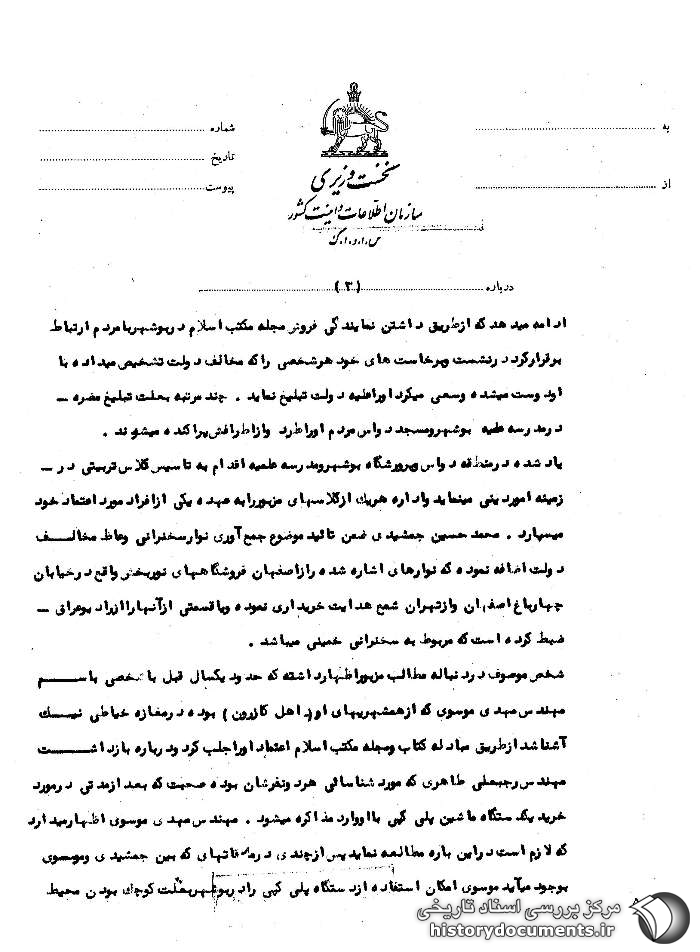 به
شماره
تاریخ
از
پیوست
نخست وزیری
سازمان اطلاعات و امنیت کشور
س.ا.و.ا.ک
درباره (۳)
ادامه میدهد که ازطریق داشتن نمایندگی فروش مجله مکتب اسلام دربوشهربامردم ارتباط
برقرارکرد درنشست وبرخاست های خود هرشخصی راکه مخالف دولت تشخیص میداده با
اودوست میشده وسعی میکرد اوراعلیه دولت تبلیغ نماید . چند مرتبه بعلت تبلیغ مضره –
درمدرسه علمیه بوشهرومسجد دواس مردم اوراطرد وازاطرافش پراکنده میشوند .
یاد شده درمنطقه دواس وپرورشگاه بوشهرومدرسه علمیه اقدام به تاسیس کلاس تربیتی در –
زمینه اموردینی مینماید واداره هریک ازکلاسهای مزبوررابه عهده یکی ازافراد مورد اعتماد خود
میسپارد . محمد حسین جمشیدی ضمن تائید موضوع جمع آوری نوارسخنرانی وعاظ مخالف
دولت اضافه نموده که نوارهای اشاره شده رازاصفهان فروشگاههای نوربخش واقع درخیابان
چهارباغ اصفهان وازتهران شمع هدایت خریداری نموده ویاقسمتی ازآنهاراازراد یوعراق –
ضبط کرده است که مربوط به سخنرانی خمینی میباشد .
شخص موصوف درد نباله مطالب مزبوراظهارداشته که حدود یکسال قبل باشخصی باسم
مهندس مهدی موسوی که ازهمشهریهای او(اهل کازرون) بوده درمغازه خیاطی نیک
آشناشد ازطریق مبادله کتاب ومجله مکتب اسلام اعتماد اوراجلب کرد ودرباره بازداشت
مهندس رجبعلی طاهری که مورد شناسائی هرد ونفرشان بوده صحبت که بعد ازمدتی درمورد
خرید یکدستگاه ماشین پلی کپی بااووارد مذاکره میشود . مهندس مهدی موسوی اظهارمیدارد
که لازم است دراین باره مطالعه نماید پس ازچندی درملاقاتهای که بین جمشیدی وموسوی
بوجود میآید موسوی امکان استفاده ازدستگاه پلی کپی رادربوشهربعلت کوچک بودن محیط
مرکز بررسی اسناد تاریخی
historydocuments.ir